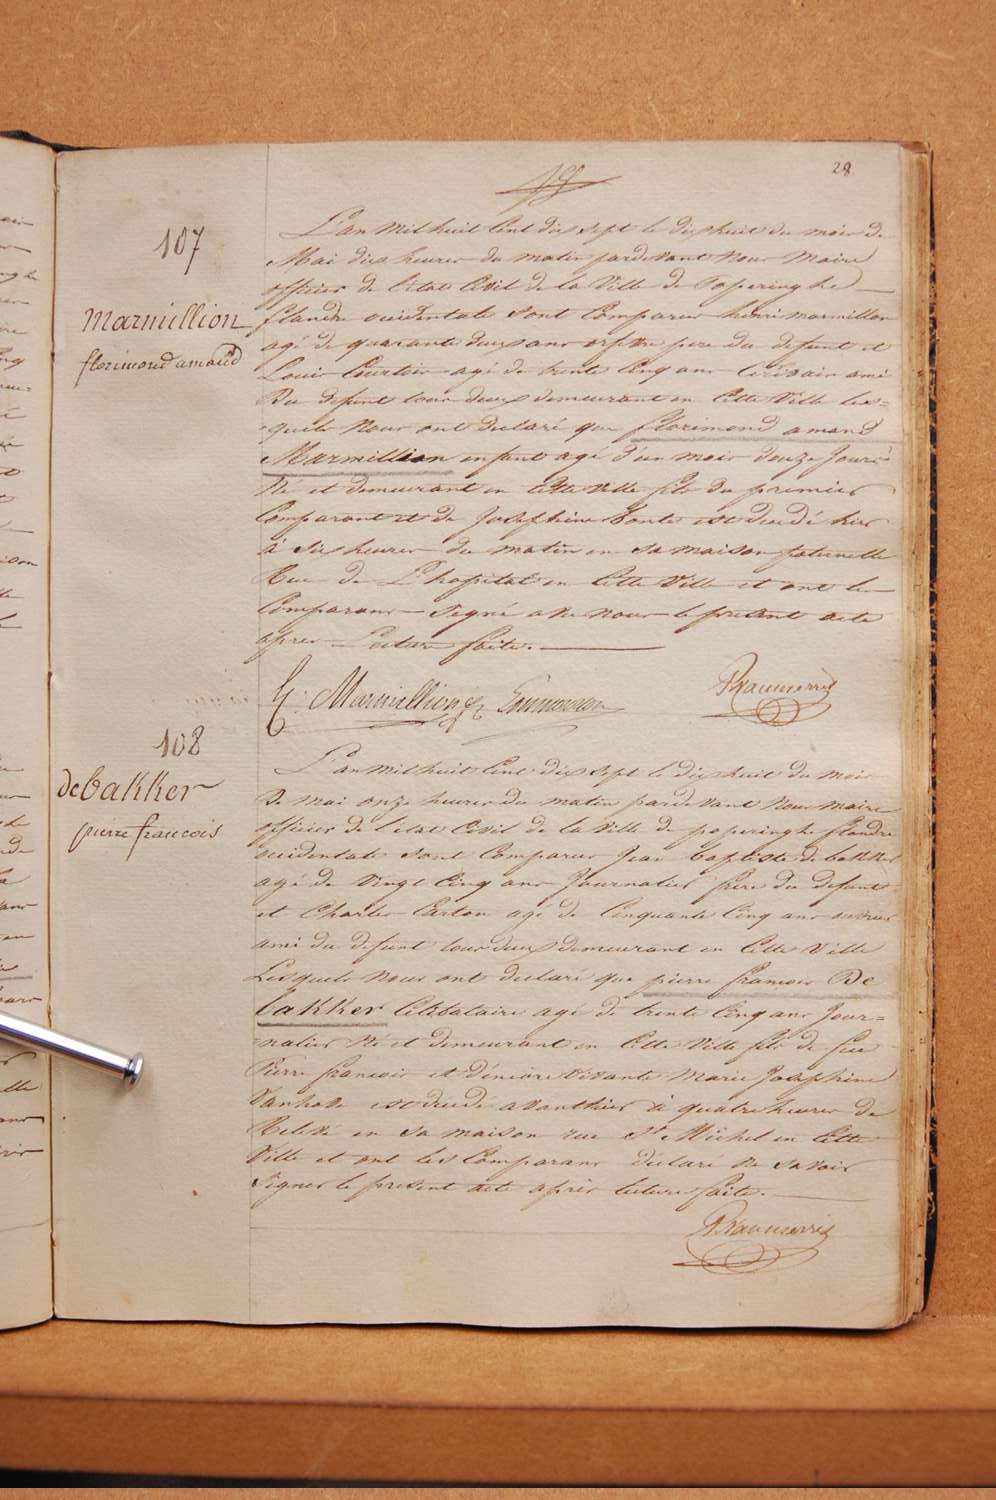 28
107
Marmillion
florimond amand
L'an mil huit Cent dix sept le dix huit du mois de
Mai dix heures du matin pardevant Nous Maire
officier de l'état Civil de la Ville de Poperinghe
flandre occidentale Sont Comparus henri marmillon
agé de quarante deux ans orfevre pere du defunt et
Louis Courtois agé de trente Cinq ans ami
Du defunt tous deux demeurant en Cette Ville les=
quels Nous ont declaré que florimond amand
Marmillion enfant agé d'un mois douze Jours
Né et demeurant en Cette Ville fils du premier
Comparant et de Josephine est decedé hier
à Six heures du matin en Sa maison paternelle
Rue de L'hopital en Cette Ville et ont les
Comparans Signé avec nous le present acte
apres Lecture faite.
Marmillion
108
de bakker
pierre francois
L'an mil huit Cent dix sept le dix huit du mois
De mai onze heures du matin pardevant Nous maire
officier de l'état Civil de la Ville de poperinghe flandre
occidentale Sont Comparus Jean baptiste de bakker
agé de Vingt Cinq ans Journalier frere du defunt
et Charles Carton agé de Cinquante Cinq ans
ami du defunt tous deux demeurant en Cette Ville
Lesquels nous ont declaré que pierre francois De
bakker Celibataire agé de trente Cinq ans Jour=
nalier Né et demeurant en Cette Ville fils de feu
Pierre francois et d'encore Vivante Marie Josephine
Vanhove est decedé avanthier à quatre heures de
Relevé en Sa maison rue St Michel en Cette
Ville et ont les Comparans declaré ne Savoir
Signer le present acte après lecture faite.